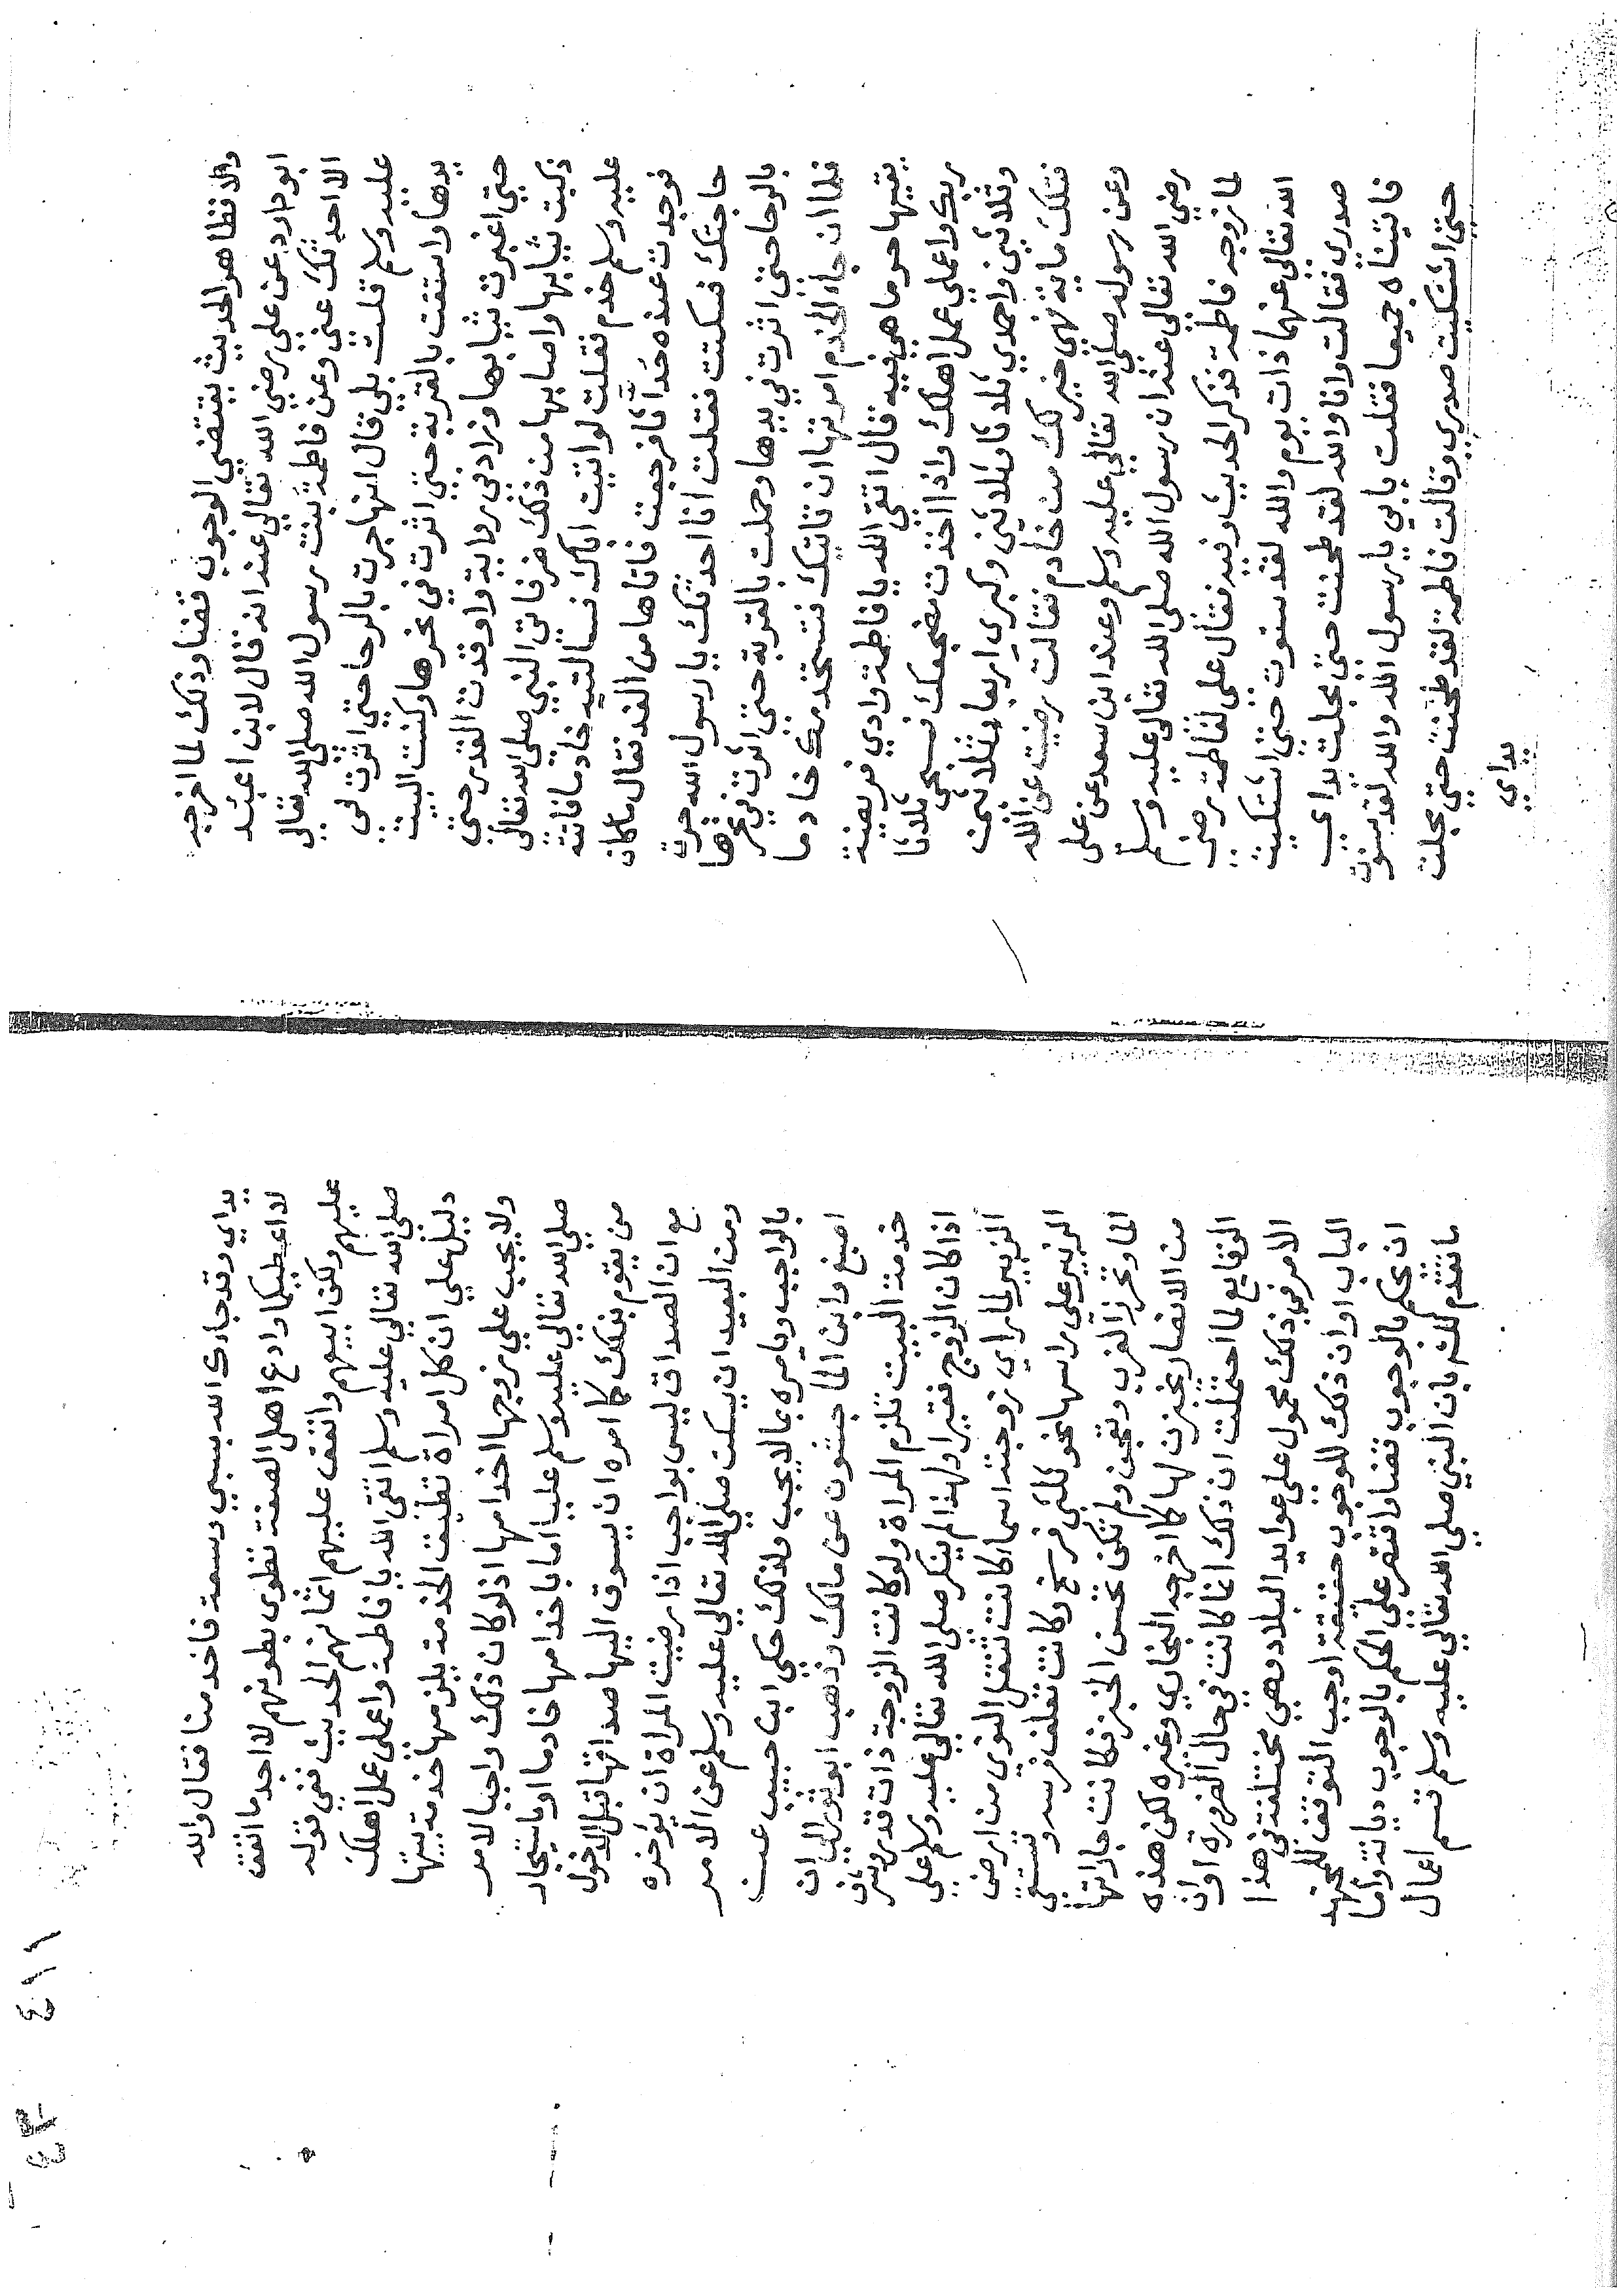 والا فظاهر الحديث يقتضي الوجوب قضا وذلك لما اخرجه
ابو داود عن علي رضي الله تعالي عنه انه قال لابن اعبد
الا احدثك عني وعن فاطمة بنت رسول الله صلي الله تعالي
عليه وسلم قلت بلي قال انها جرت بالرحا حتي اثرت في
يدها واستقت بالقربة حتي اثرت في نحرها وكنست البيت
حتي اغبرت ثيابها وزاد في رواية واوقدت القدر حتي
دكنت ثيابها واصابها من ذلك ضر فاتي النبي صلي الله تعالي
عليه وسلم خدم فقلت لو اتيت اباك فسالتيه خادما فاتته
فوجدت عنده حداثا فرجعت فاتاها من الغد فقال ما كان
حاجتك فسكتت فقلت انا احدثك يا رسول الله جرت
بالرحا حتي اثرت في يدها وحملت بالقربة حتي اثرت في نحرها
فلما ان جاء الخدم امرتها ان تاتيك فتستخدمك خادما
يقيها حر ما هي فيه قال اتقي الله يا فاطمة وادي فريضة
ربك واعملي عمل اهلك واذا اخذت مضجعك فسبحي ثلاثا
وثلاثين واحمدي ثلاثا وثلاثين وكبري اربعا وثلاثين
فتلك ماية فهي خير لك من خادم فقالت رضيت عن الله
وعن رسوله صلي الله تعالي عليه وسلم وعند ابن سعد عن علي
رضي الله تعالي عنه ان رسول الله صلي الله تعالي عليه وسلم
لما زوجه فاطمة فذكر الحديث وفيه فقال علي لفاطمة رضي
الله تعالي عنهما ذات يوم والله لقد سنوت حتي اشتكيت
صدري فقالت وانا والله لقد طحنت حتي مجلت يداي
فاتيناه جميعا فقلت يا بي يا رسول الله والله لقد سنوت
حتي اشتكيت صدري وقالت فاطمة لقد طحنت حتي مجلت
يداي
يداي وقد جاءك الله بسبي وسعة فاخدمنا فقال والله
لا اعطيكما وادع اهل الصفة تطوي بطونهم لا اجد ما انفق
عليهم ولكن ابيعهم وانفق عليهم اثمانهم الحديث ففي قوله
صلي الله تعالي عليه وسلم اتقي الله يا فاطمة واعملي عمل اهلك
دليل علي ان كل امراة تطيف الخدمة يلزمها خدمة بيتها
ولا يجب علي زوجها اخدامها اذ لو كان ذلك واجبا لامر
صلي الله تعالي عليه وسلم عليا اما باخدامها خادما او باستيجار
من يقوم بذلك كما امره ان يسوق اليها صداقها قبل الدخول
مع ان الصداق ليس بواجب اذا رضيت المراة ان يؤخره
ومن البعيد ان يسكت صلي الله تعالي عليه وسلم عن الامر
بالواجب ويامره بما لا يجب ولذلك حكي ابن حبيب عن
اصبغ وابن الماجشون عن مالك وذهب ابو ثور الي ان
خدمة البيت تلزم المراة ولو كانت الزوجة ذات قدر وشرف
اذا كان الزوج فقيرا ولهذا لم ينكر صلي الله تعالي عليه وسلم علي
الزبير لما راي زوجته اسما كانت تنقل النوي من ارض
الزبير علي راسها نحو ثلثي فرسخ وكانت تعلف فرسه وتستقي
الما وتخرز الغرب وتعجن ولم تكن تحسن الخبز فكانت جاراتها
من الانصار يخبزن لها كما اخرجه البخاري وغيره لكن هذه
الوقايع لما احتملت ان ذلك انما كانت في حال الضرورة او ان
الامر في ذلك محمول علي عوايد البلاد وهي مختلفة في هذا
الباب او ان ذلك للوجوب حقيقة اوجب التوقف للمجتهد
ان يحكم بالوجوب قضا واقتصر علي الحكم بالوجوب ديانة واما
ما تقدم لك ثم بان النبي صلي الله تعالي عليه وسلم قسم اعمال